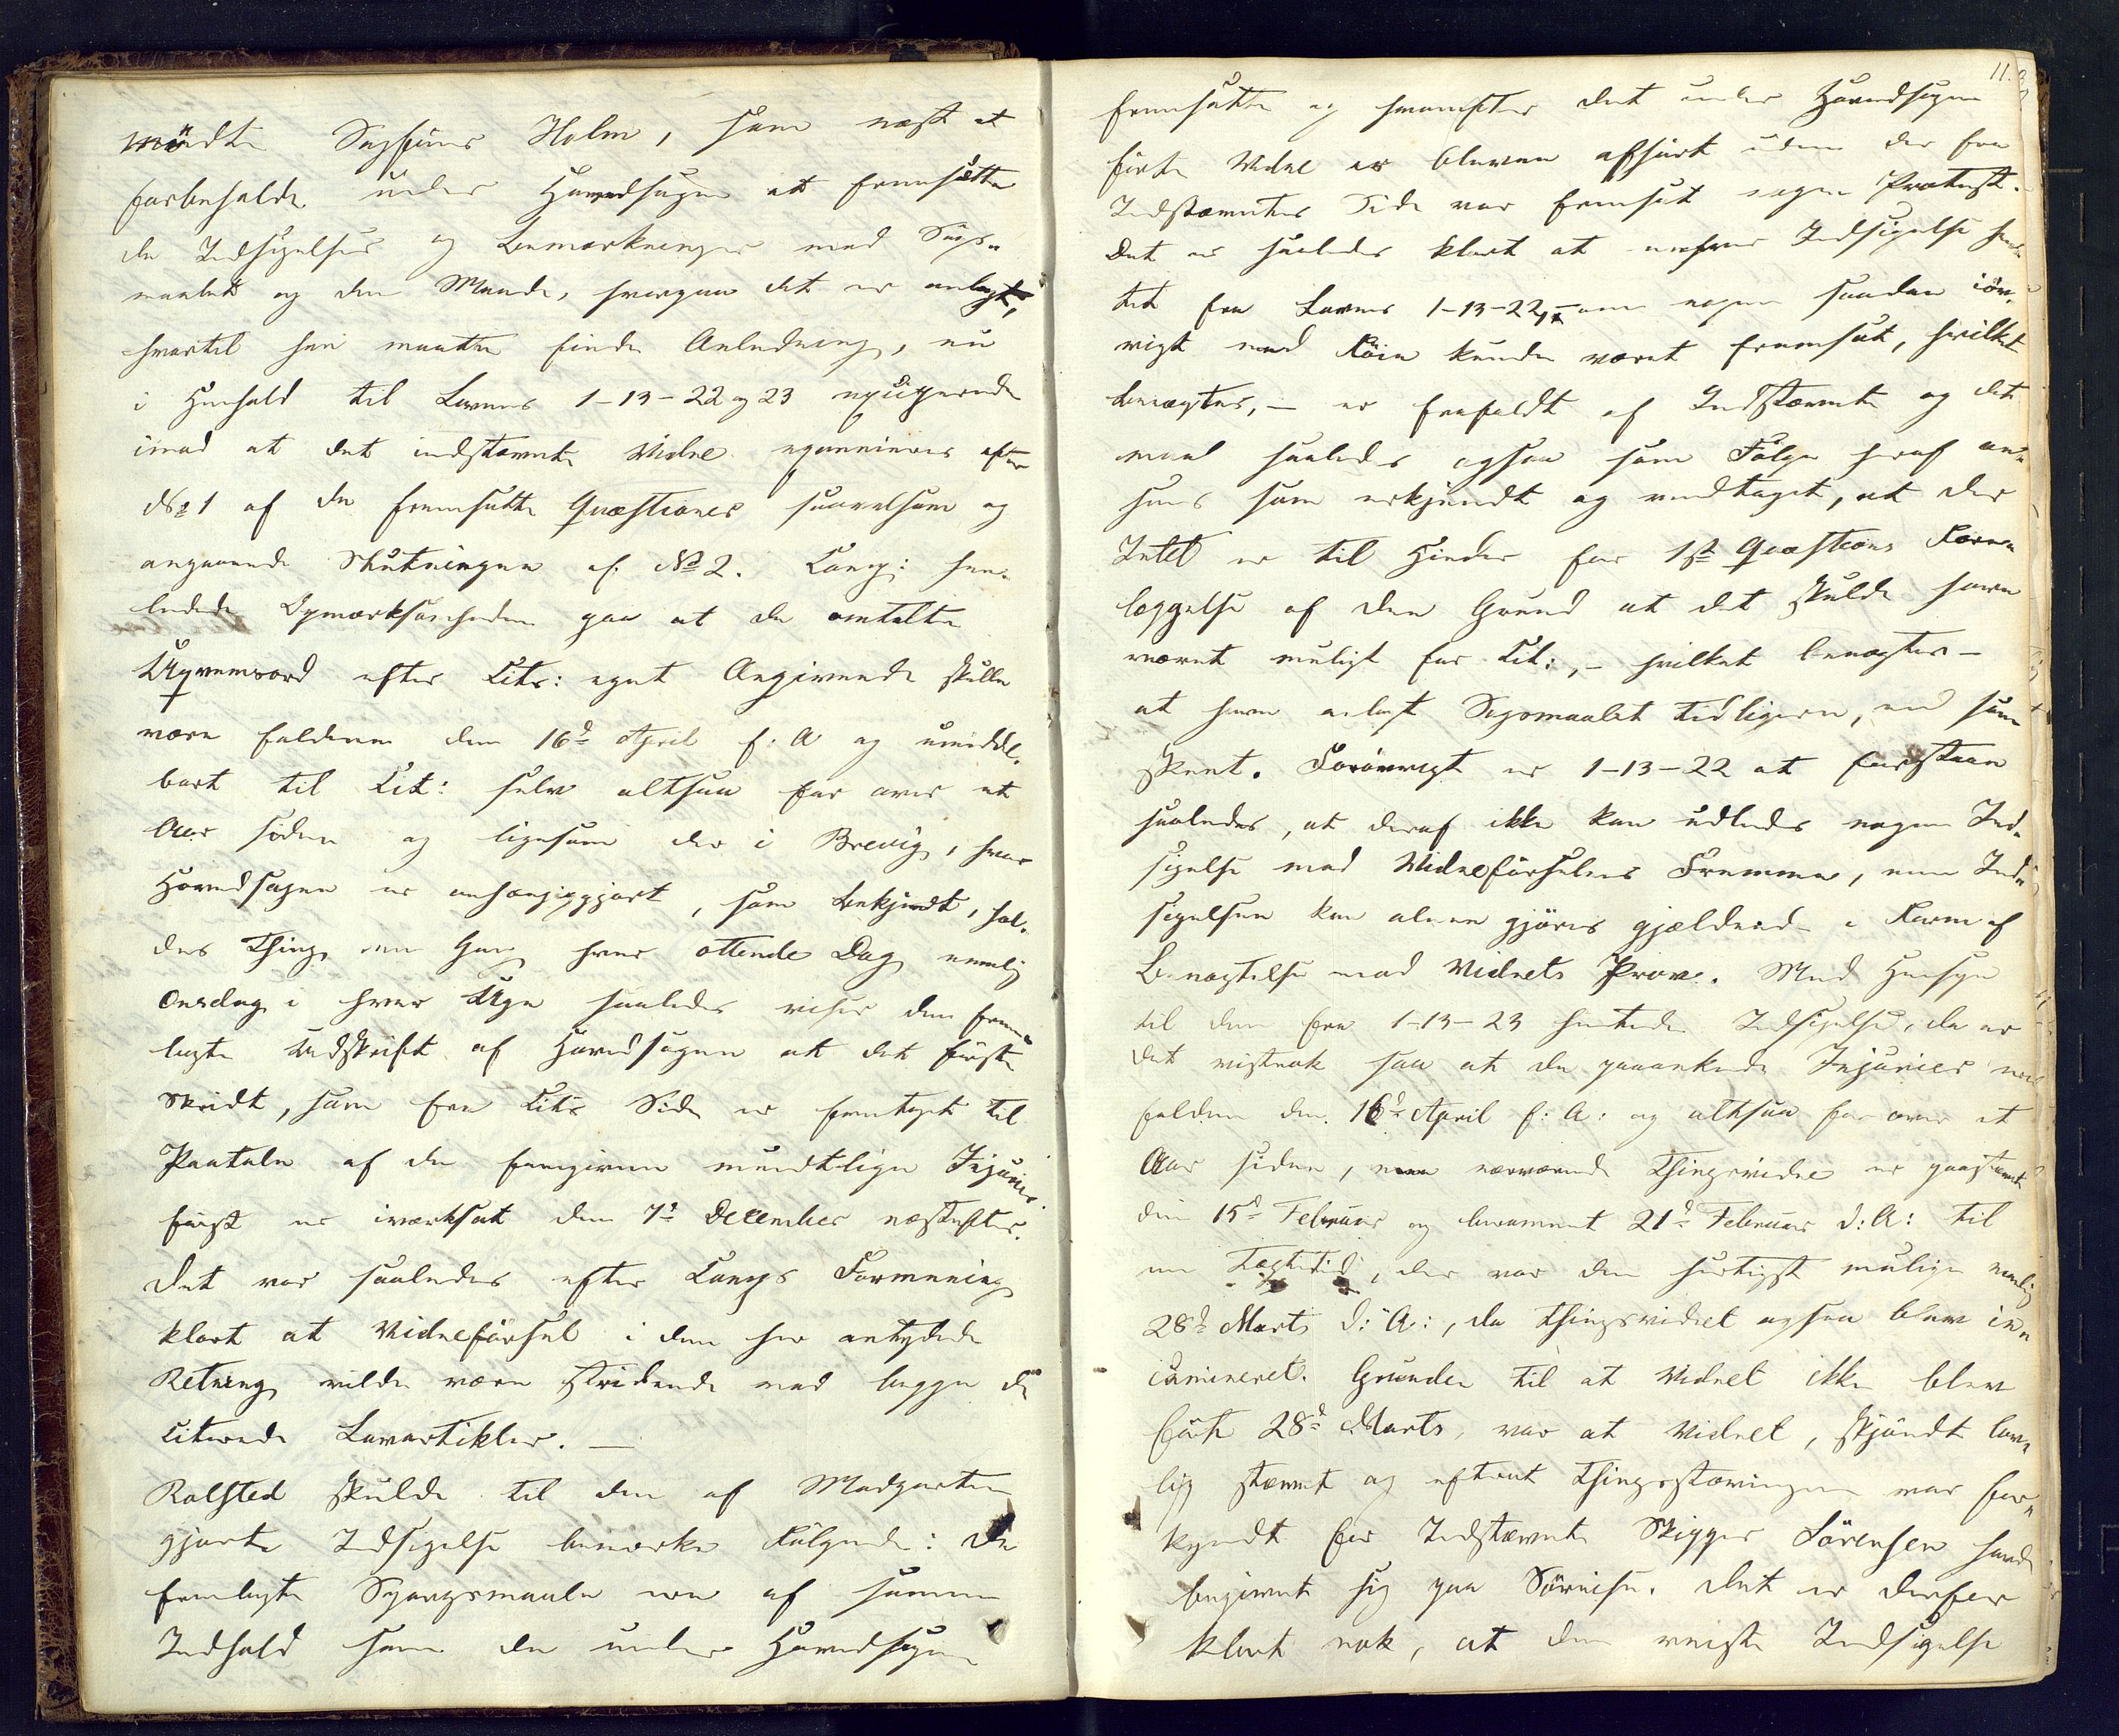 mödte Sagförer Holm, som næst at
forbeholde under Hovedsagen at fremsætte
de Indsigelser og Bemærkninger mod Søgs-
maalet og den Maade, hvorpaa det er anlagt,
hvortil han maatte finde Anledning, nu
i Henhold til Lovens 1-13-22 og 23 exciperede
imod at det indstævnte Vidne examineres efter
No 1 af de fremsatte Qvæstioner saavelsom og
angaaende Slutningen af No 2. Comp: hen-
ledede Opmærksomheden paa at de omtalte
Uqvemsord efter Cits: eget Angivende skulle
være faldne den 16d April f: A og umiddel-
bart til Cit: selv altsaa for over et
Aar siden og ligesom der i Brevig, hvor
Hovedsagen er anhængiggjort, som bekjendt, hol-
des Thing een Gang hver ottende Dag nemlig
Onsdag i hver Uge saaledes viser den frem-
lagte Udskrift af Hovedsagen at det første
Skridt, som fra Cits Side er foretaget til
Paatale af de foregivne mundtlige Injurier
først er iværksat den 7d December næstefter.
Det var saaledes efter Comps Formening
klart at Vidneförsel i den her antydede
Retning vilde være stridende mod begge de
citerede Lovartikler. —
Rolsted skulde til den af Modparten
gjorte Indsigelse bemærke Følgende: De
fremlagte Spørgsmaale ere af samme
Indhold som de under Hovedsagen
11.
fremsatte og hvorefter det under Hovedsagen
förte Vidne er bleven afhört uden der fra
Indstævntes Side var fremsat nogen Protest.
Det er saaledes klart at enhver Indsigelse hen-
tet fra Lovens 1-13-22, – om nogen saadan iöv-
rigt med Föie kunde været fremsat, hvilket
benægtes, – er frafaldt af Indstævnte og det
maa saaledes ogsaa som Fölge heraf an-
sees som erkjendt og vedtaget, at der
Intet er til Hinder for 1st Qvæstions Fore-
læggelse af den Grund at det skulde have
været muligt for Cit:, – hvilket benægtes –
at have anlagt Søgsmaalet tidligere, end som
skeet. Forövrigt er 1-13-22 at forstaae
saaledes, at deraf ikke kan udledes nogen Ind-
sigelse mod Vidneförselens Fremme, men Ind-
sigelsen kan alene gjöres gjældende i Form af
Benægtelse mod Vidnets Prov. Med Hensyn
til den fra 1-13-23 hentede Indsigelse, da er
det vistnok saa at de paaankede Injurier ere
faldne den 16d April f: A: og altsaa for over et
Aar siden, men nærværende Thingsvidne er paastævnt
den 15d Februar og berammet 21d Februar d: A: til
en Tægtetid, der var den hurtigst mulige nemlig
28d Marts d: A:, da Thingsvidnet ogsaa blev in-
camineret. Grunden til at Vidnet ikke blev
fört 28d Marts, var at Vidnet, skjöndt lov-
lig stævnt og efterat Thingsstævningen var for-
kyndt for Indstævnte Skipper Sörensen havde
begivet sig paa Söreise. Det er derfor
klart nok, at den reiste Indsigelse